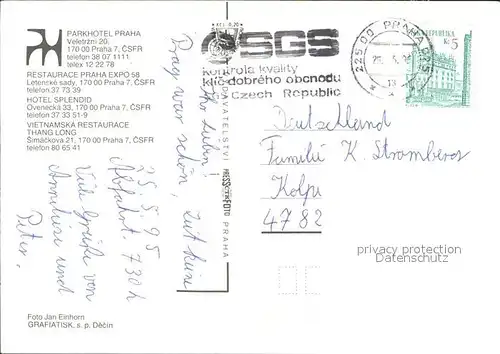 PARKHOTEL PRAHA
Veletržní 20
170 00 Praha 7, ČSFR
telefon 38 07 1111
telex 12 22 78
RESTAURACE PRAHA EXPO 58
Letenské sady, 170 00 Praha 7, ČSFR
telefon 37 73 39
HOTEL SPLENDID
Ovenecká 33, 170 00 Praha 7, ČSFR
telefon 37 33 51-9
VIETNAMSKÁ RESTAURACE
THANG LONG
Šimáčkova 21, 170 00 Praha 7, ČSFR
telefon 80 65 41
Ihr Lieben!
Prag war schön, Zeit keine
25.5.95
Abfahrt 7 30 h
Viele Grüße von
Anneliese und
Peter.
Foto Jan Einhorn
GRAFIATISK, s. p. Děčín
KČS 0,20
SGS
kontrola kvality
klíč dobrého obchodu
Czech Republic
225 00 PRAHA 025
13
REPUBLIKA
Kč 5
PRAHA
Deutschland
Familie K. Stromberg
Kolpe
4782
privacy protection
Ogedem.de